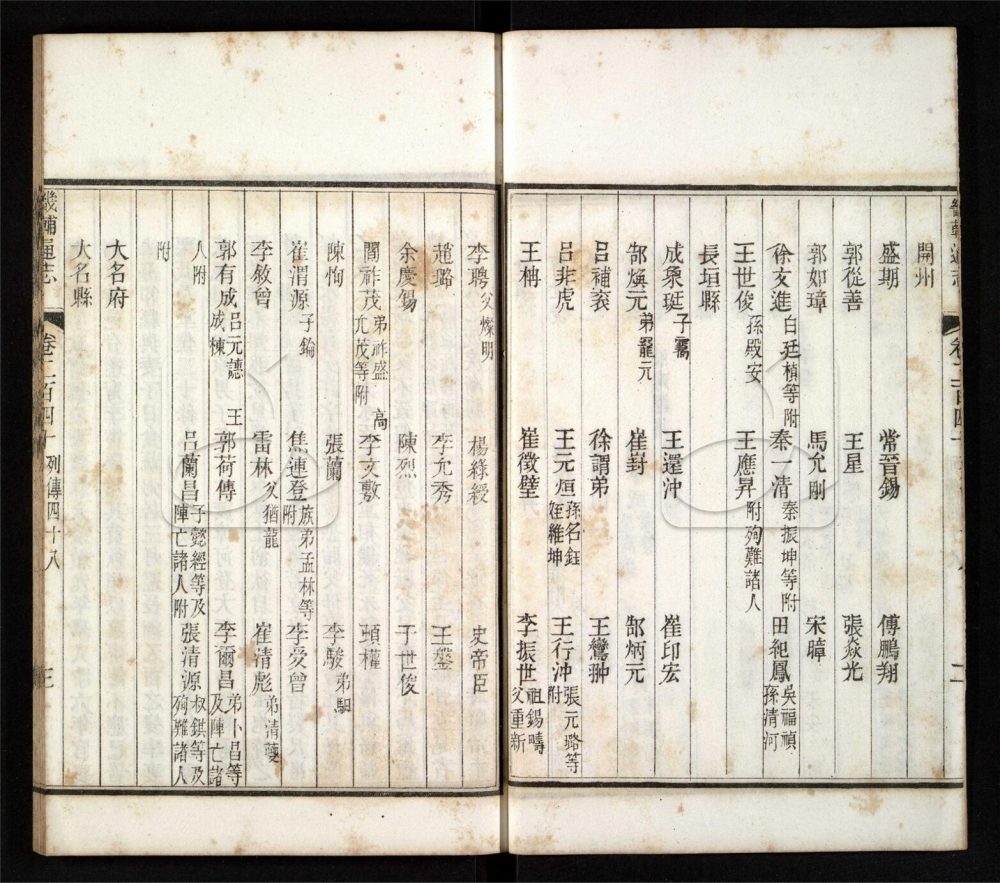 開州
盛期 常晉錫 傅鵬翔
郭從善 王星 張焱光
郭如璋 馬允剛 宋暐
徐文進 白廷楨等附 秦一清 秦振坤等附 田紀鳳 吳福禎 孫清河
王世俊 孫殿安 王應昇 附殉難諸人
長垣縣
成象珽 子騫 王還沖 崔印宏
郜煥元 弟寵元 崔封 郜炳元
呂補袞 徐謂弟 王鸞翀
呂非虎 王元烜 孫名鈺 姪維坤 王行沖 張元璐等附
王桷 崔徵璧 李振世 祖錫疇 父重新
李聘 父燦明 楊綠綬 史帝臣
趙璐 李允秀 王盤
余慶錫 陳烈 于世俊
閻祚茂 弟祚盛 尤茂等附 高 李文敷 頓權
陳恂 張蘭 李駿 弟駟
崔渭源 子錀 焦連登 族弟孟林等附 李愛曾
李敘曾 雷林 父猶龍 崔清彪 弟清蘷
郭有成 呂元聰 王成棟 郭荷傳 李爾昌 弟卜昌等及陣亡諸
人附 呂蘭昌 子懿經等及陣亡諸人附 張清源 叔錤等及殉難諸人
附
大名府
大名縣
畿輔通志 卷二百四十 列傳四十八